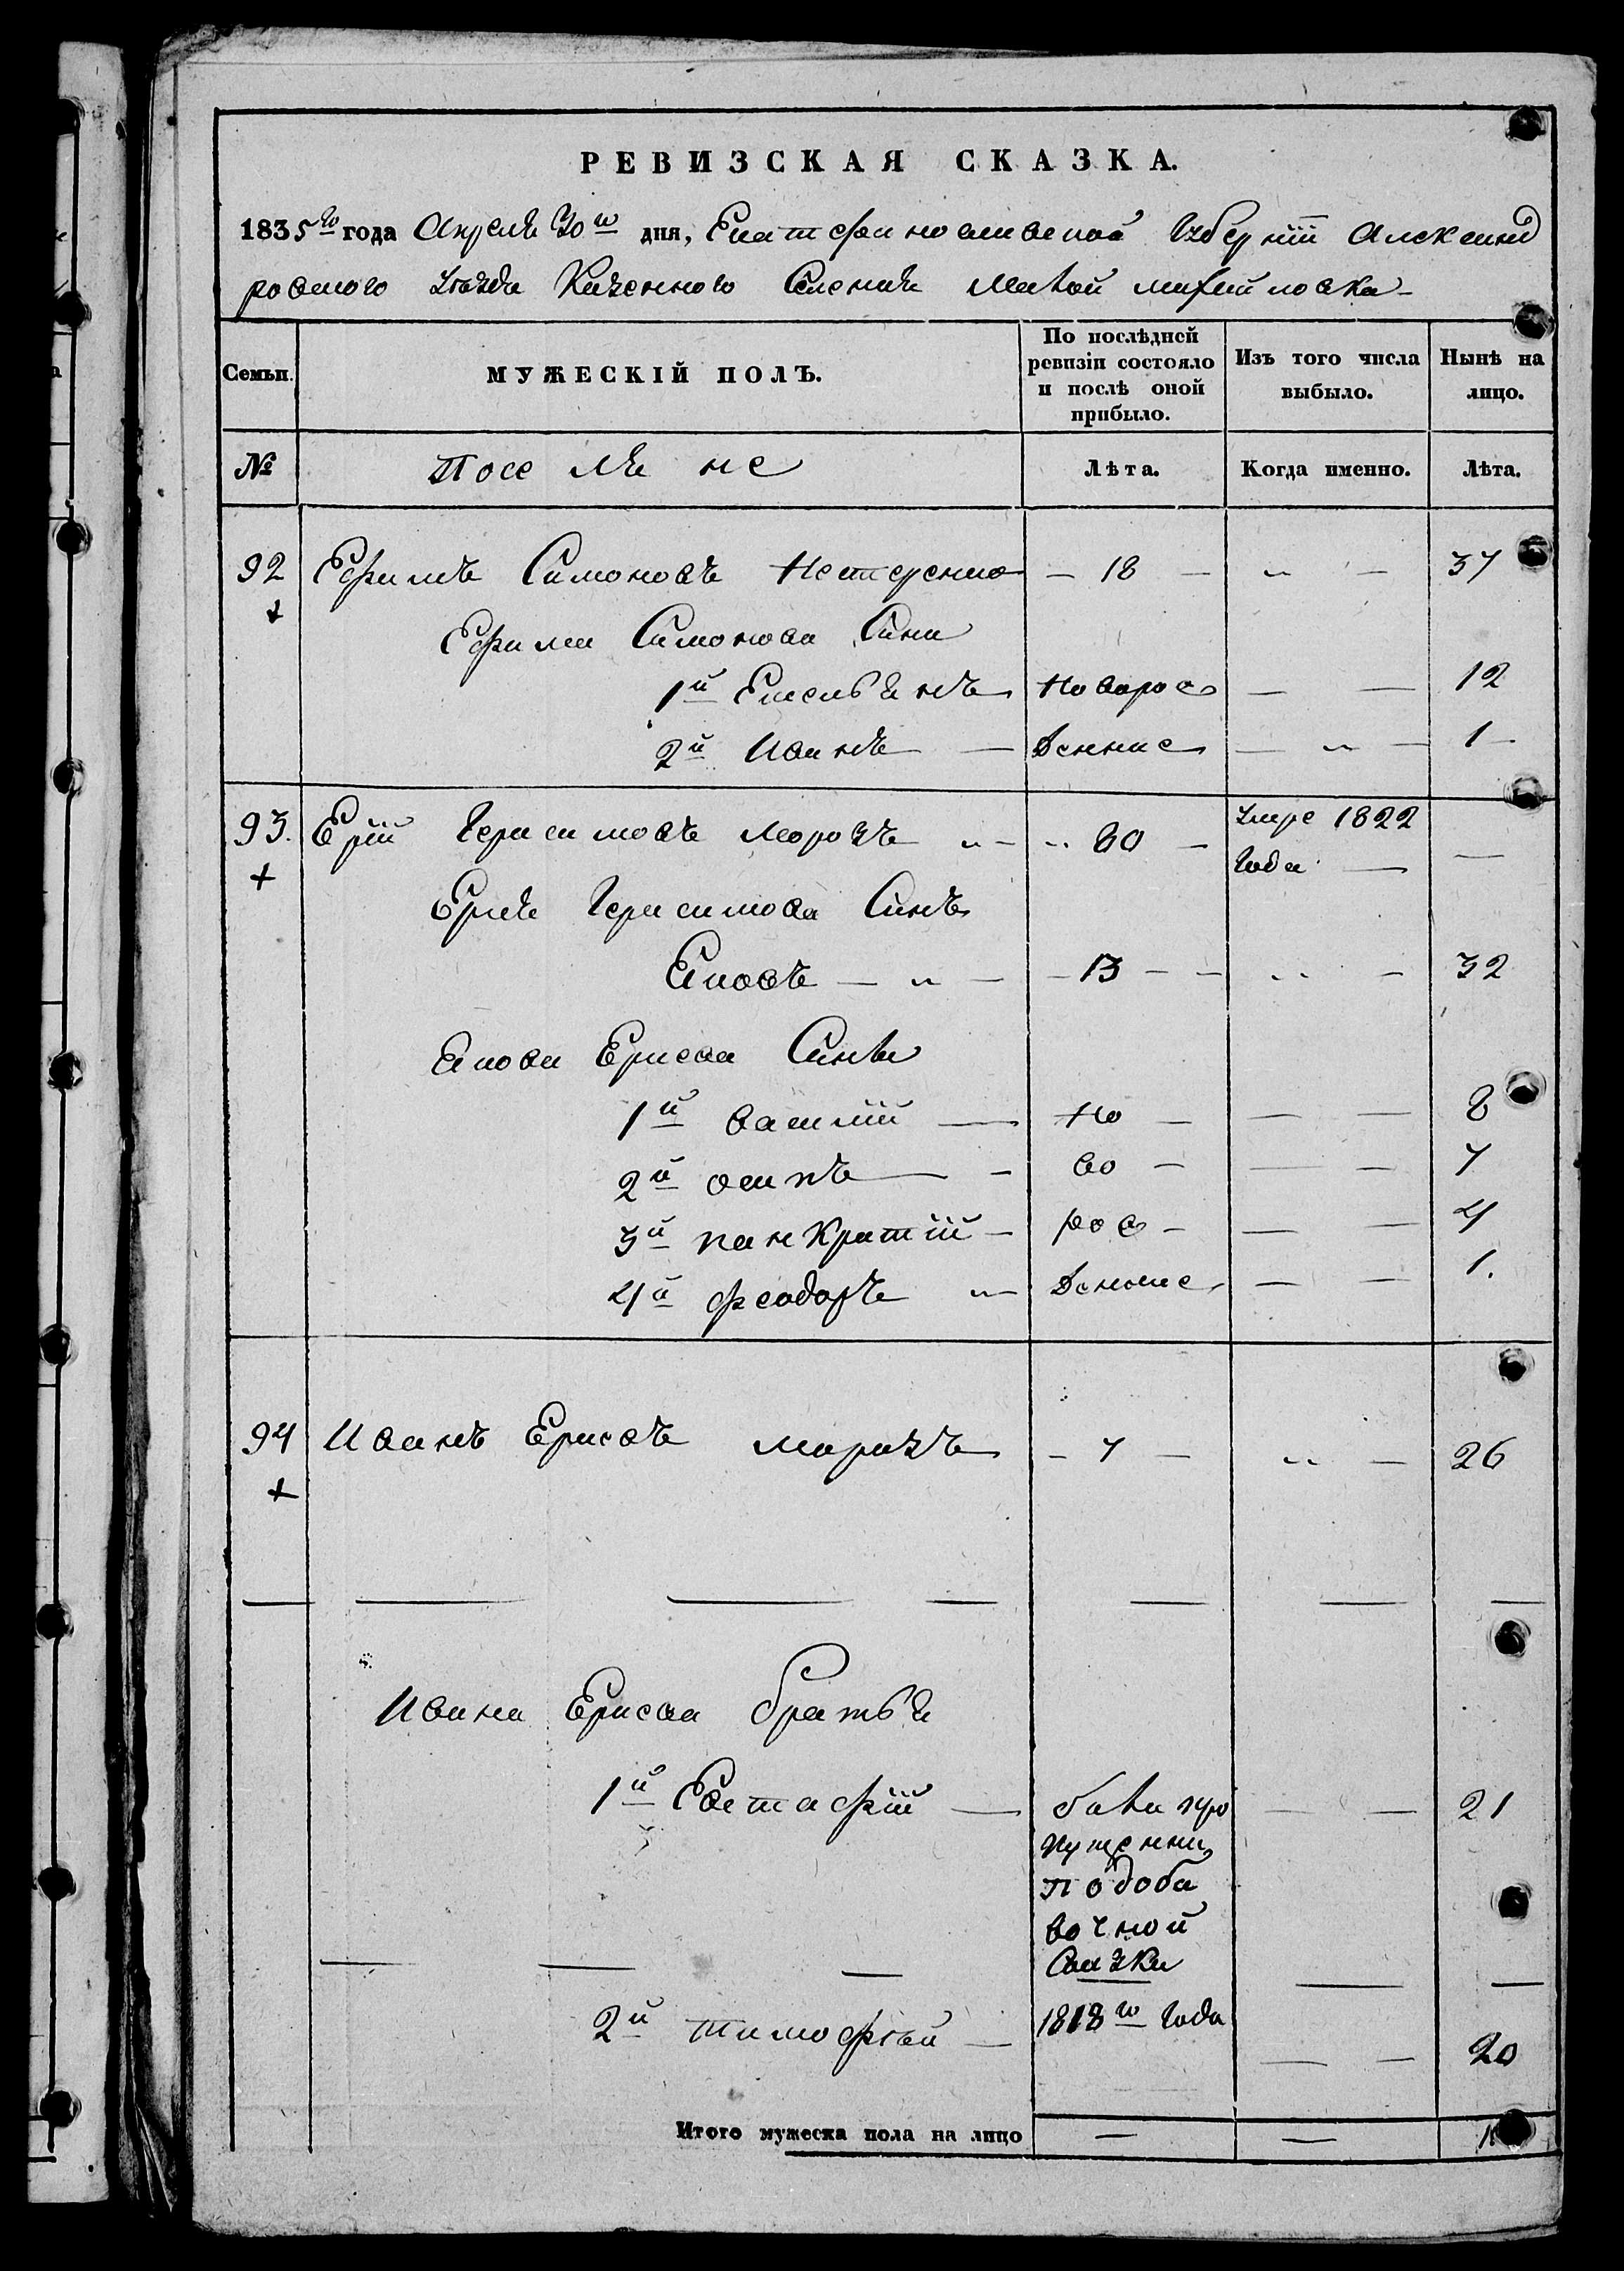 РЕВИЗСКАЯ СКАЗКА.
1835го года Апреля 30го дня, Екатеринославской Губерніи Александ
ровского уѣзда Казенного Селенія Малой михайловка
Семьи. МУЖЕСКІЙ ПОЛЪ. По послѣдней ревизіи состояло и послѣ оной прибыло. Изъ того числа выбыло. Нынѣ на лицо.
№ Поселяне Лѣта. Когда именно. Лѣта.
92 Ефимъ Симоновъ Нестеренко — 18 — „ — 37
Ефима Симонова Сины
1й Емельянъ Новорож — — 12
2й Иванъ — денние — „ — 1
93. Ерій Герасимовъ Морозъ „ — „ 60 — умре 1822 года — —
Ерія Герасимова Синъ
Яковъ — „ — — 13 — — „ — 32
Якова Ериева Сины
1й василій — но — — — 8
2й осипъ — — во — — — 7
3й панкратій — рож — — — 4
4й феодоръ „ денние — — 1.
94 Иванъ Ериевъ морозъ — 7 — „ — 26
Ивана Ериева братья
1й Евстафій — били про — — 21
пущенни
по доба
вочной
Сказки
2й тимофѣй — 1818го года — — 20
Итого мужеска пола на лицо — —